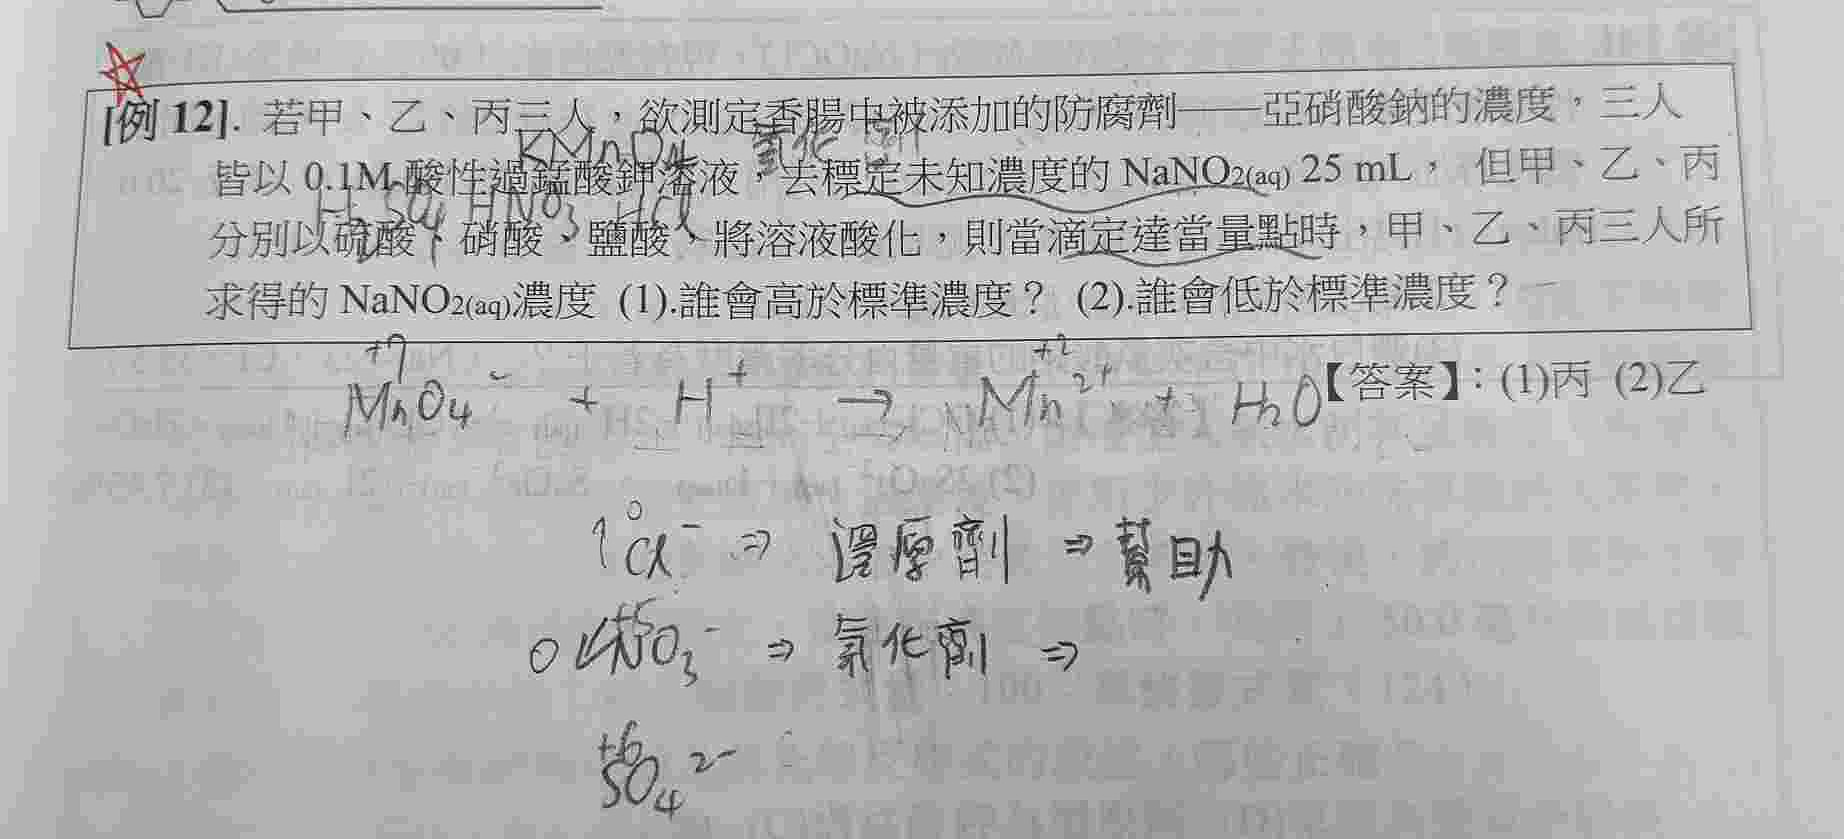 [例 12]. 若甲、乙、丙三人，欲測定香腸中被添加的防腐劑——亞硝酸鈉的濃度，三人
KMnO4 氧化劑
皆以 0.1M 酸性過錳酸鉀溶液，去標定未知濃度的 NaNO2(aq) 25 mL， 但甲、乙、丙
H2SO4 HNO3 HCl
分別以硫酸、硝酸、鹽酸，將溶液酸化，則當滴定達當量點時，甲、乙、丙三人所
求得的 NaNO2(aq)濃度 (1).誰會高於標準濃度？ (2).誰會低於標準濃度？
+7 +2
MnO4- + H+ → Mn2+ + H2O
【答案】：(1)丙 (2)乙
0
Cl- ⇒ 還原劑 ⇒ 幫助
+5
NO3- ⇒ 氧化劑 ⇒
+6
SO4 2-